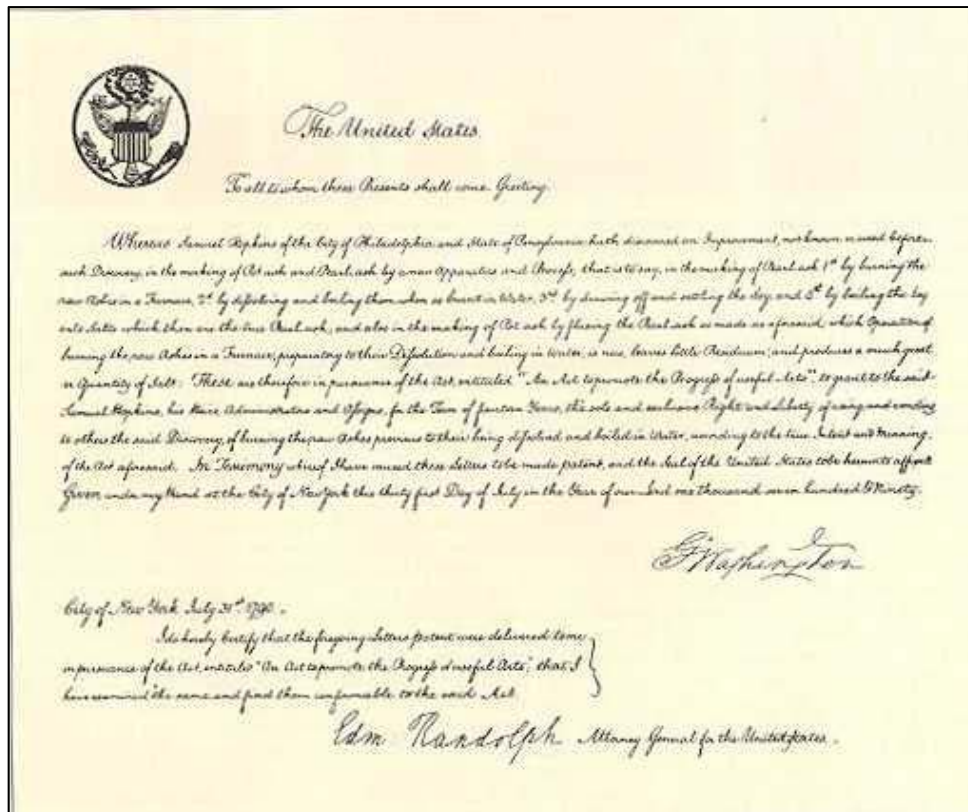 The United States
To all to whom these Presents shall come Greeting.
Whereas Samuel Hopkins of the City of Philadelphia and State of Pensylvania hath discovered an Improvement, not known or used before
such Discovery, in the making of Pot ash and Pearl ash by a new Apparatus and Process, that is to say, in the making of Pearl ash 1st by burning the
raw Ashes in a Furnace, 2d by dissolving and boiling them when so burnt in Water, 3rd by drawing off and settling the Ley, and 4th by boiling the Ley
into Salts which then are the true Pearl ash; and also in the making of Pot ash by fluxing the Pearl ash so made as aforesaid; which Operation of
burning the raw Ashes in a Furnace, preparatory to their Dissolution and boiling in Water, is new, leaves little Residuum; and produces a much great
er Quantity of Salt: These are therefore in pursuance of the Act, entituled "An Act to promote the Progress of useful Arts", to grant to the said
Samuel Hopkins, his Heirs, Administrators and Assigns, for the Term of fourteen Years, the sole and exclusive Right and Liberty of using and vending
to others the said Discovery, of burning the raw Ashes previous to their being dissolved and boiled in Water, according to the true Intent and Meaning
of the Act aforesaid. In Testimony whereof I have caused these Letters to be made patent, and the Seal of the United States to be hereunto affixed
Given under my Hand at the City of New York this thirty first Day of July in the Year of our Lord one thousand seven hundred & Ninety.
G Washington
City of New York July 31st 1790.
I do hereby Certify that the foregoing Letters patent were delivered to me
in pursuance of the Act, entituled "An Act to promote the Progress of useful Arts"; that I
have examined the same and find them conformable to the said Act.
Edm Randolph Attorney General for the United States.